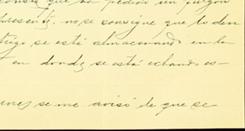 que ha pedido un
presente; no se consigue que lo den
trigo se está almacenando en la
en donde se está echando es-
se me avisó de que se